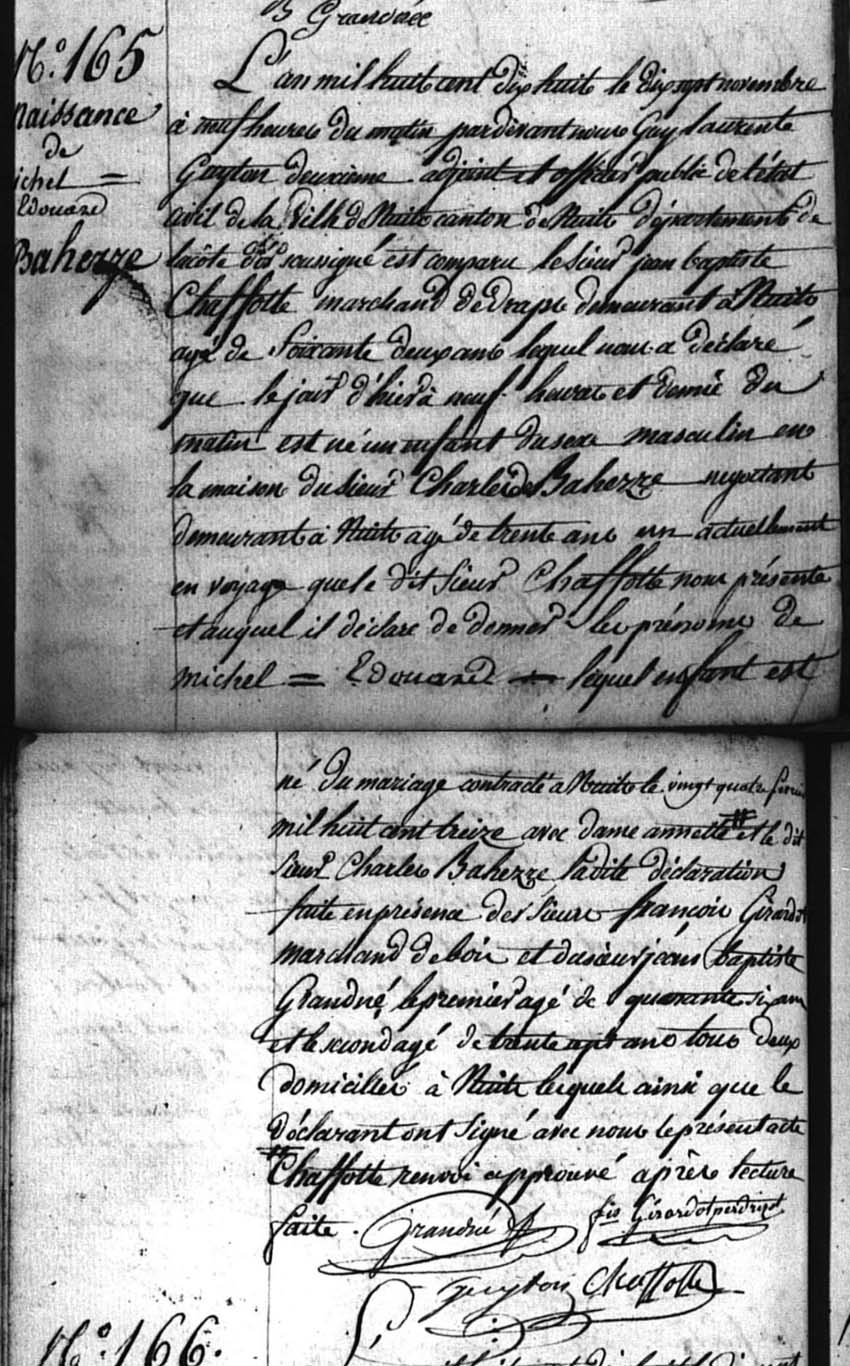 Grandnée
N.° 165
naissance
de
ichel =
Edouard
Baherze
L'an mil huit cent dix huit le dix sept novembre
à neuf heures du matin pardevant nous Guy laurent
Guyton deuxième adjoint et officier public de l'état
Civil de la Ville de Nuits canton de Nuits département de
la côte d'or soussigné est comparu le Sieur jean baptiste
Chaffotte marchand de Draps demeurant à Nuits
agé de Soixante deux ans lequel nous a déclaré
que le jour d'hier à neuf heures et demie du
matin est né un enfant du sexe masculin en
la maison du Sieur Charles Baherze negotiant
demeurant à Nuits agé de trente ans actuellement
en voyage que le dit Sieur Chaffotte nous présente
et auquel il déclare de donner les prénoms de
michel = Edouard — lequel enfant est
né du mariage contracté a Nuits le vingt quatre fevrie
mil huit cent treize avec dame annette # et le dit
Sieur Charles Baherze ladite déclaration
faite en présence des Sieurs françois Girardot
marchand de bois et du sieur jean baptiste
Grandné, le premier agé de quarante six ans
et le second agé de trente sept ans tous deux
domiciliés à Nuits lesquels ainsi que le
déclarant ont Signé avec nous le présent acte
# Chaffotte renvoi approuvé après lecture
faite. Grandné fis Girardot perdrizot
Guyton Chaffotte
N.° 166.